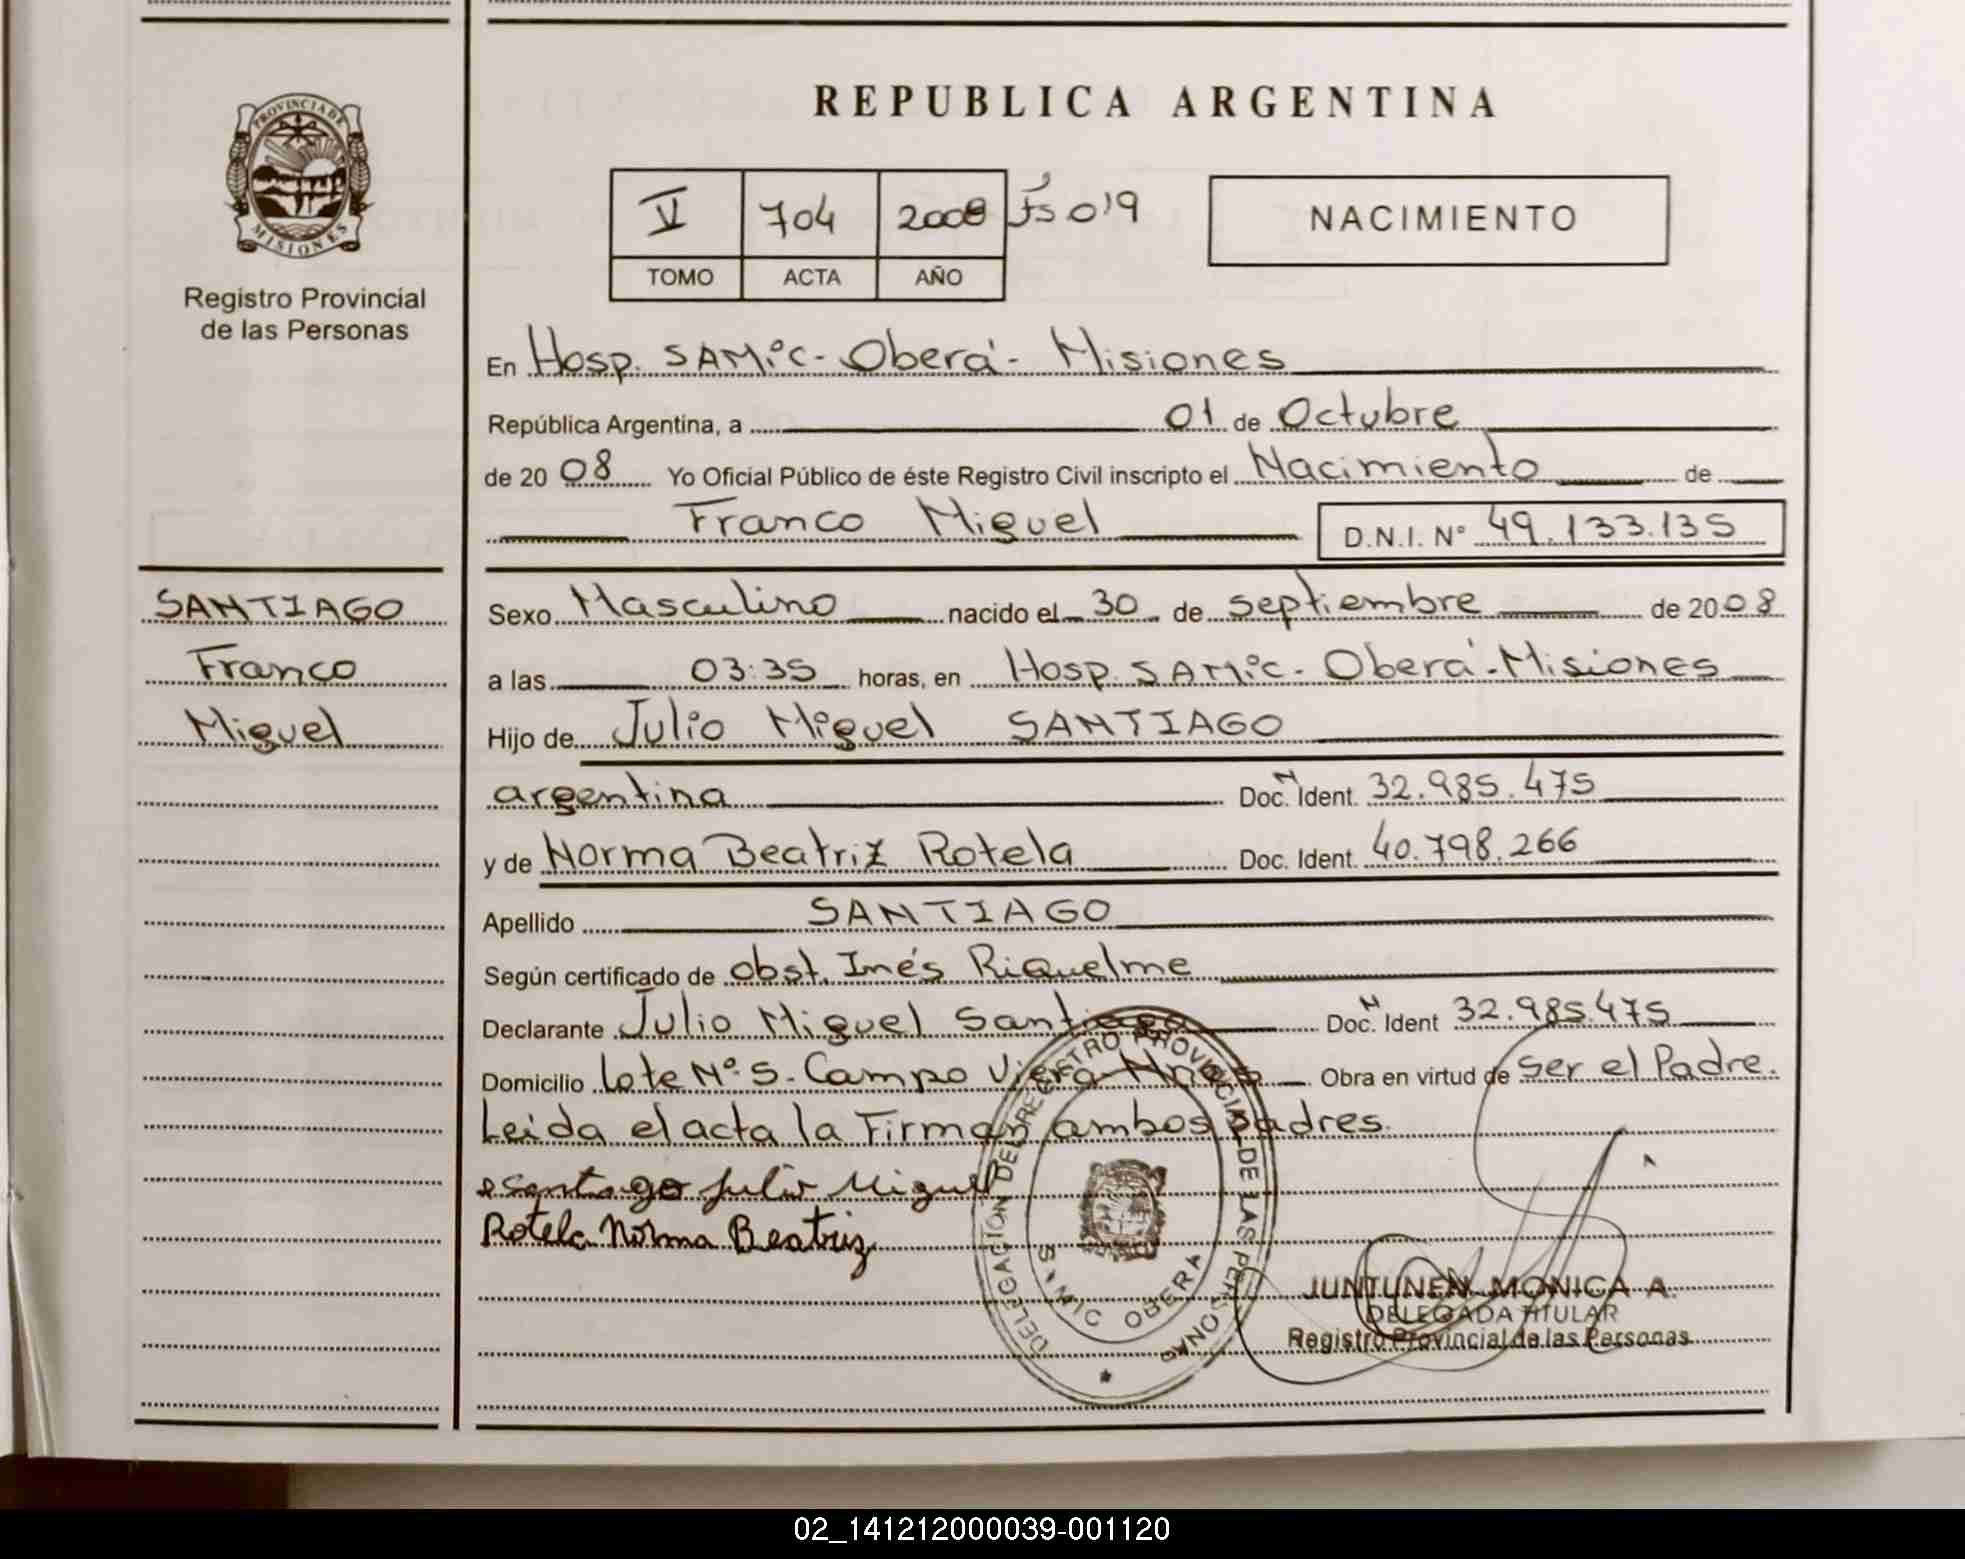 REPUBLICA ARGENTINA
V 704 2008 Fs 019
TOMO ACTA AÑO
NACIMIENTO
PROVINCIA DE
MISIONES
Registro Provincial
de las Personas
En Hosp. SAMic - Oberá - Misiones
República Argentina, a 01 de Octubre
de 2008 Yo Oficial Público de éste Registro Civil inscripto el Nacimiento de
Franco Miguel D.N.I. Nº 49.133.135
SANTIAGO
Franco
Miguel
Sexo Masculino nacido el 30 de septiembre de 2008
a las 03:35 horas, en Hosp. SAMic - Oberá - Misiones
Hijo de Julio Miguel SANTIAGO
argentina Doc. N Ident. 32.985.475
y de Norma Beatriz Rotela Doc. Ident. 40.798.266
Apellido SANTIAGO
Según certificado de obst. Inés Riquelme
Declarante Julio Miguel Santiago Doc. N Ident 32.985.475
Domicilio Lote Nº 5 - Campo Viera - Mnes Obra en virtud de ser el Padre.
Leida el acta la Firman ambos padres.
Santiago Julio Miguel
Rotela Norma Beatriz
DELEGACIÓN DEL REGISTRO PROVINCIAL DE LAS PERSONAS
SAMIC OBERA
JUNTUNEN MONICA A.
DELEGADA TITULAR
Registro Provincial de las Personas
02_141212000039-001120